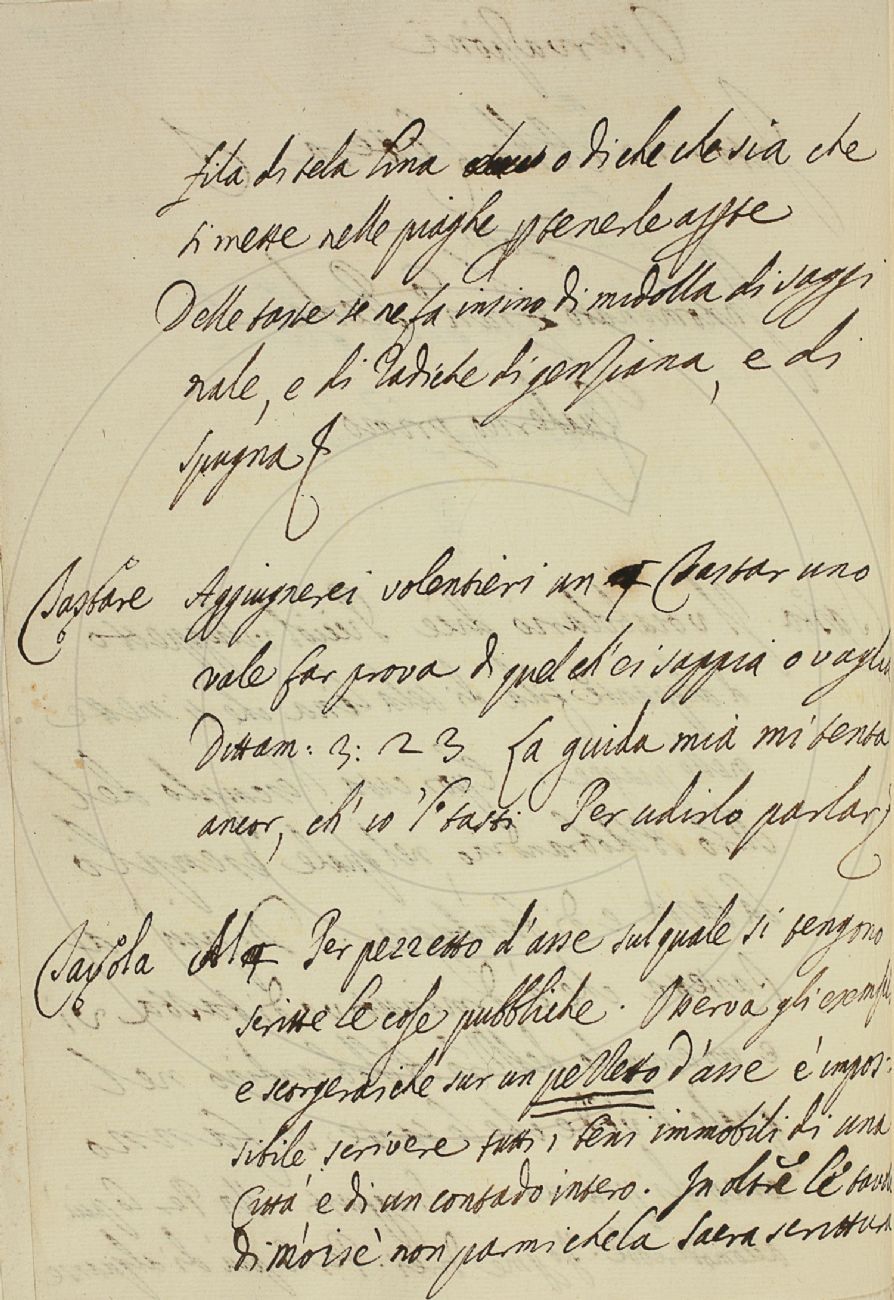 fila di tela lina o di che che sia che
si mette nelle piaghe p tenerle apte
Delle taste se ne fa insino di midolla di saggi
nale, e di radiche di genziana, e di
spugna
Tastare Aggiugnerei volentieri un § Tastar uno
vale far prova di quel ch' ei sappia o vaglia
Dittam: 3: 23 La guida mia mi tenta
ancor, ch' io 'l tasti Per udirlo parlar
Tavola Al § Per pezzetto d'asse sul quale si tengono
scritte le cose pubbliche. Osserva gli esempli
e scorgerai che sur un pezzetto d'asse è impos:
sibile scrivere tutti i beni immobili di una
Città e di un contado intero. In oltre le tavole
di Moisè non parmi che la Sacra scrittura